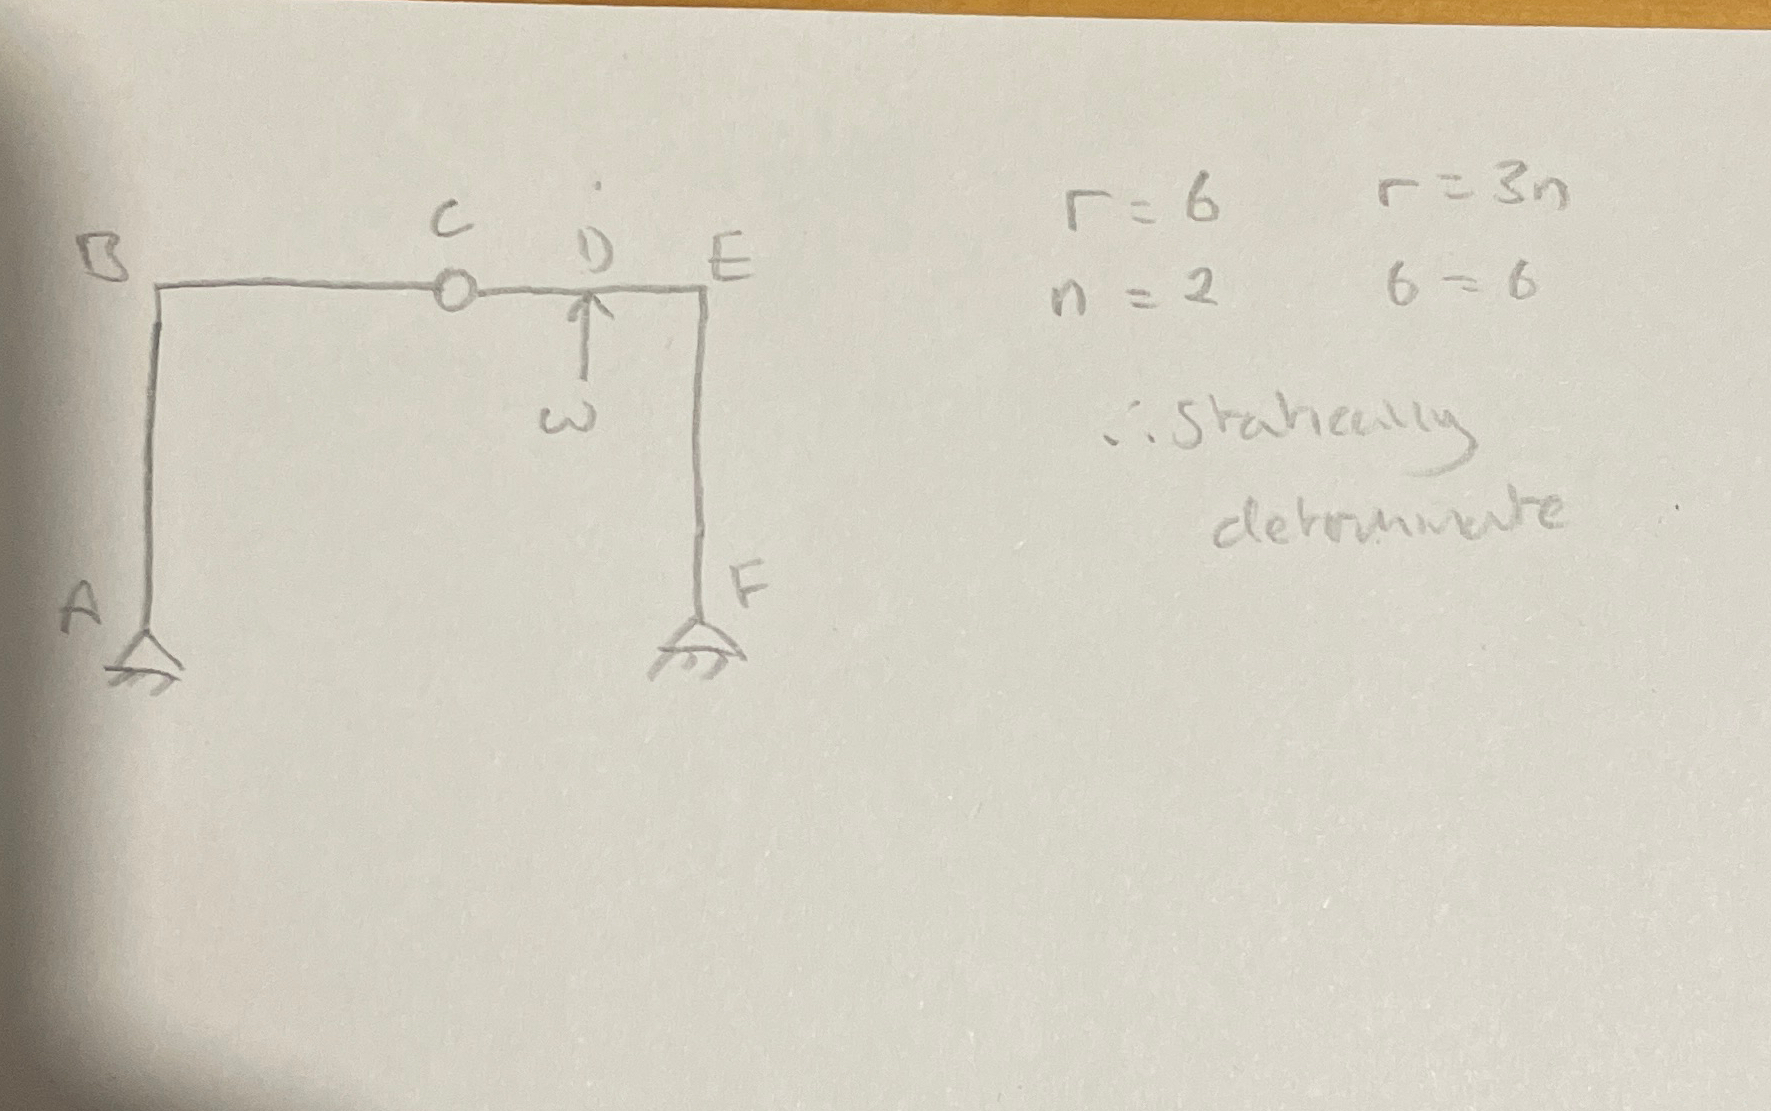 B
C
D
E
W
A
F
r = 6
r = 3n
n = 2
6 = 6
∴ Statically
determinate